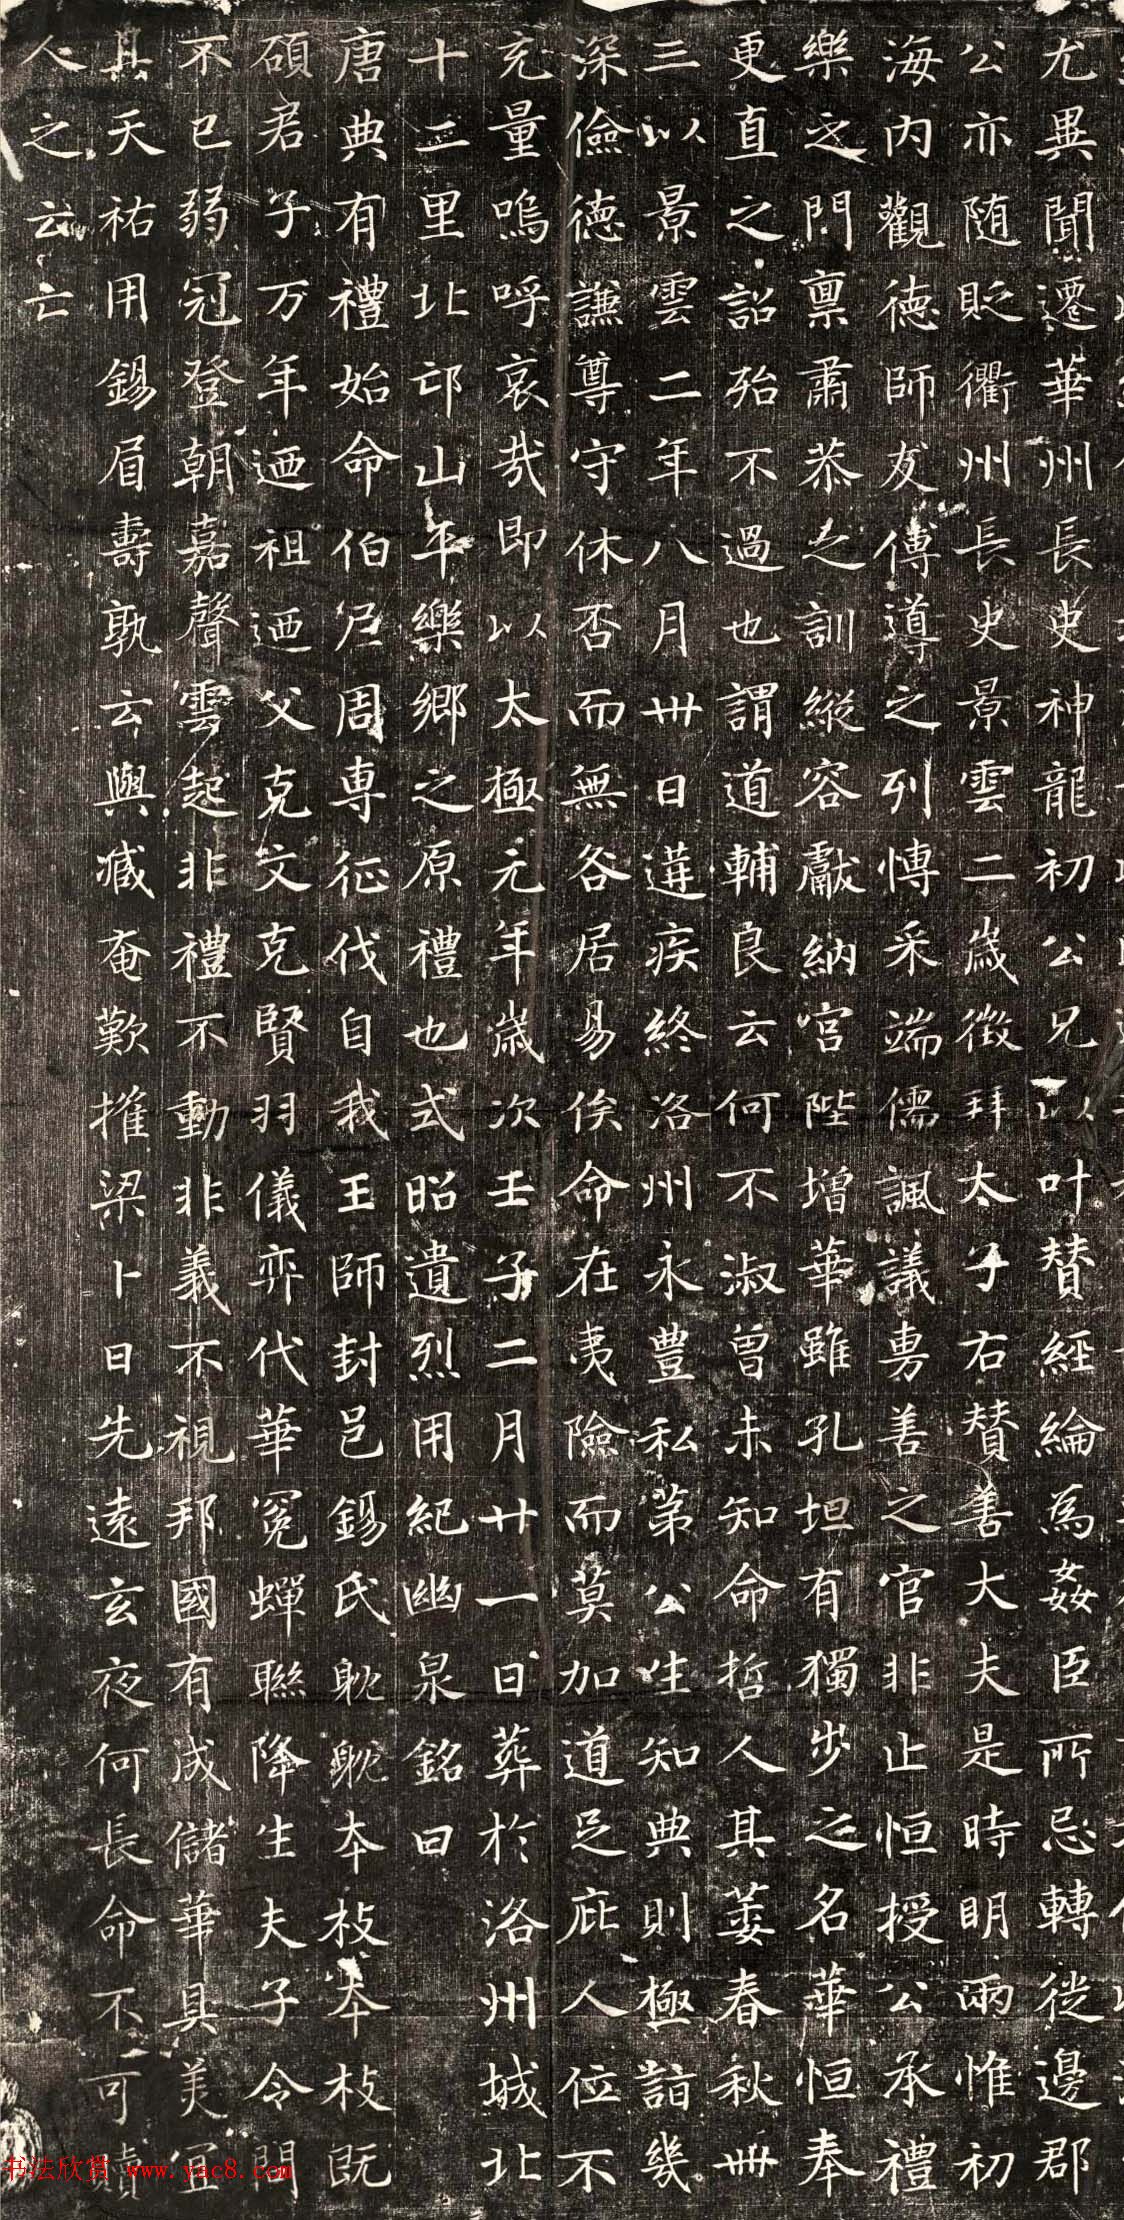 尤異聞遷華州長史神龍初公兄以叶賛經綸為姦臣所忌轉徙邊郡
公亦随貶衢州長史景雲二歳徴拜太子右賛善大夫是時明兩惟初
海内觀德師友傅導之列愽采端儒諷議專善之官非止恒授公承禮
樂之門禀肅恭之訓縱容獻納宫陛增華雖孔坦有獨步之名華恒奉
更直之詔殆不過也謂道輔良云何不淑曾未知命哲人其萎春秋卌
三以景雲二年八月卅日遘疾終洛州永豊私第公生知典則極詣幾
深儉德謙尊守休否而無咎居易俟命在夷險而莫加道足庇人位不
充量嗚呼哀哉即以太極元年歳次壬子二月廿一日葬於洛州城北
十二里北邙山平樂鄉之原禮也式昭遺烈用紀幽泉銘曰
唐典有禮始命伯尸周専征伐自我王師封邑錫氏躭躭本枝本枝既
碩君子万年迺祖迺父克文克賢羽儀弈代華冕蟬聯降生夫子令問
不已弱冠登朝嘉聲雲起非禮不動非義不視邦國有成儲華具美宜
其天祐用錫眉壽孰云與臧奄歎摧梁卜日先遠玄夜何長命不可贖
人之云亡
书法欣赏 www.yac8.com